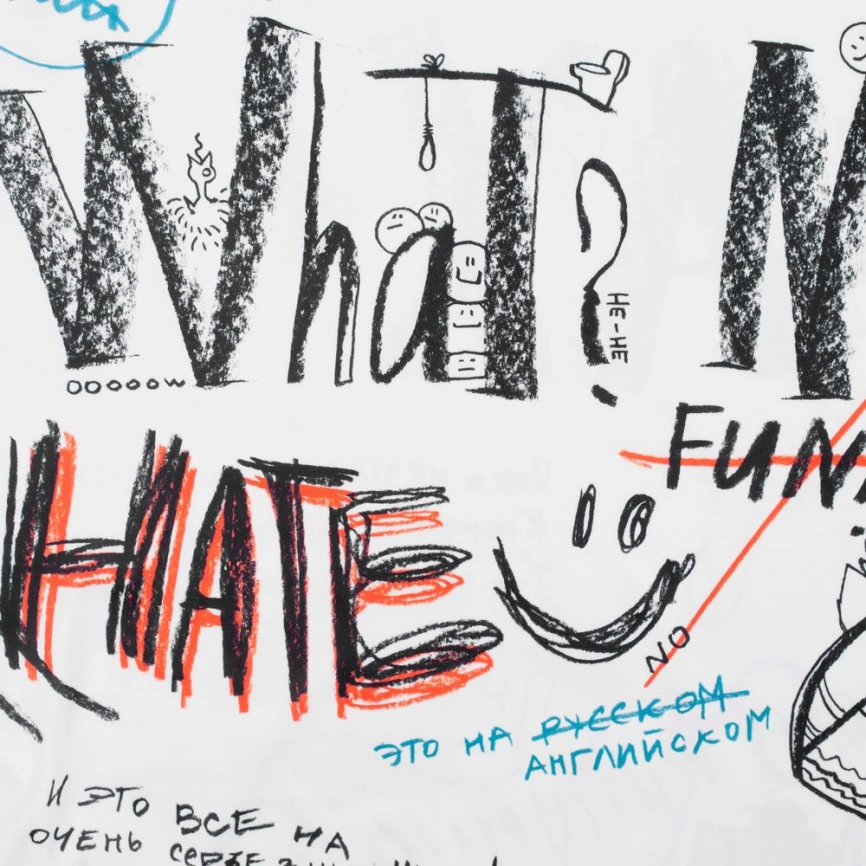 WhaT?
HE-HE
ooooow
HATE
FUN
NO
ЭТО НА РУССКОМ
АНГЛИЙСКОМ
И ЭТО ВСЕ НА
ОЧЕНЬ